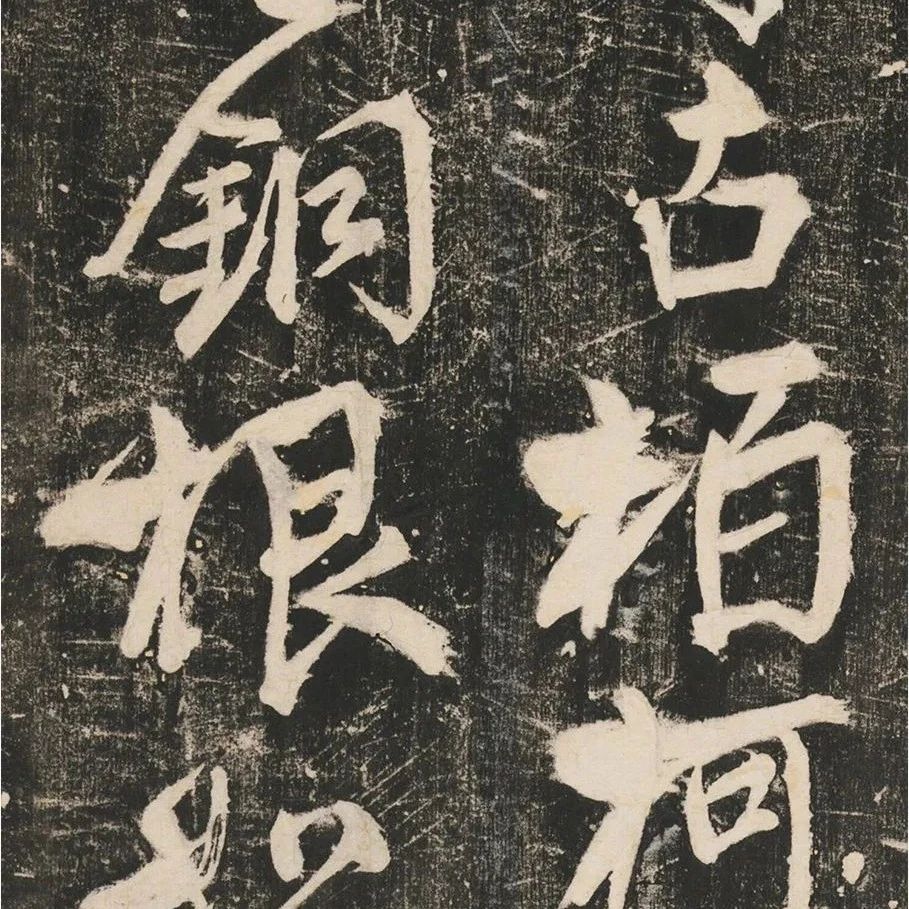 古柏柯
銅根如